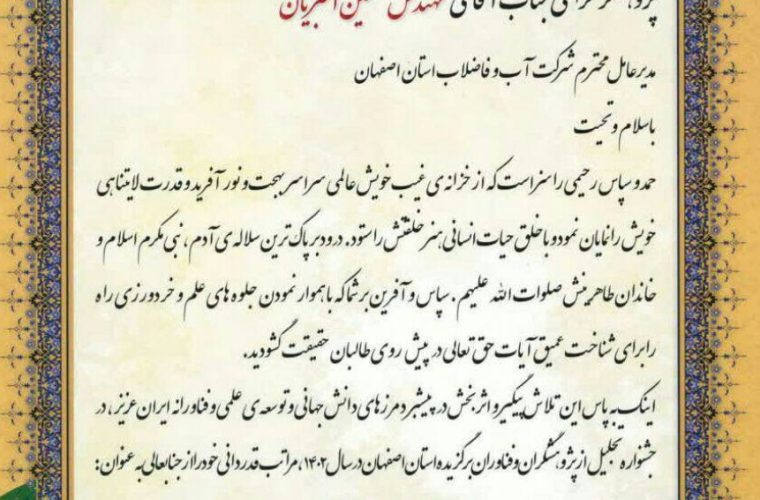 جناب آقای مهندس
مدیرعامل محترم شرکت آب و فاضلاب استان اصفهان
باسلام و تحیت
حمد و سپاس رحیمی را سزاست که از خزانه‌ی غیب خویش عالمی سراسر بهجت و نور آفرید و قدرت لایتناهی
خویش را نمایان نمود و با خلق حیات انسانی هنر خلقتش را ستود. درود بر پاک‌ترین سلاله‌ی آدم، نبی مکرم اسلام و
خاندان طاهرینش صلوات الله علیهم. سپاس و آفرین بر شما که با هموار نمودن جلوه‌های علم و خردورزی راه
را برای شناخت عمیق آیات حق تعالی در پیش روی طالبان حقیقت گشودید.
اینک به پاس این تلاش پیگیر و اثربخش در پیشبرد مرزهای دانش جهانی و توسعه‌ی علمی و فناورانه ایران عزیز، در
جشنواره تجلیل از پژوهشگران و فناوران برگزیده استان اصفهان در سال ۱۴۰۲، مراتب قدردانی خود را از جنابعالی به عنوان: